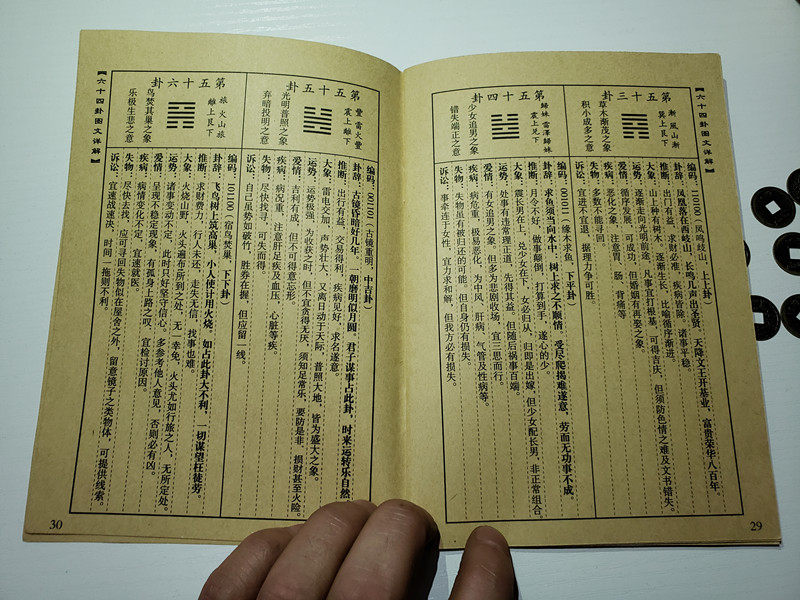 【六十四卦图文详解】
第五十三卦
渐 風山渐
巽上艮下
草木渐茂之象
积小成多之意
编码：110100（凤鸣岐山，上上卦）
卦辞：凤凰落在西岐山，长鸣几声出圣贤，天降文王开基业，富贵荣华八百年。
推断：出门有益，求财必准，疾病皆除，诸事平稳。
大象：山上种有树木，逐渐生长，比喻循序渐进。
运势：逐渐走向光明前途，凡事宜打根基，可得吉庆，但须防色情之难及文书错失。
爱情：循序发展，可成功，但婚姻有再娶之象。
疾病：恶化之象，注意胃、肠、背痛等
失物：多数不能寻回。
诉讼：宜进不宜退，据理力争可胜。
第五十四卦
歸妹 雷澤歸妹
震上兑下
少女追男之象
错失端正之意
编码：001011（缘木求鱼，下平卦）
卦辞：求鱼须当向水中，树上求之不顺情，受尽爬揭难遂意，劳而无功事不成。
推断：月令不好，做事颠倒，打算到手，遂心的少。
大象：震长男在上，兑少女在下，女必归从，归即是出嫁，但少女配长男，非正常组合。
运势：处事有违常理正道，先得其益，但随后祸事百端。
爱情：有女追男之象，但多为悲剧收场，宜三思而行。
疾病：病危重，极易恶化，为中风、肝病，气管及性病等。
失物：失物虽有被归还的可能，但自身仍有损失。
诉讼：事牵连于女性，宜力求和解，但我方必有损失。
29
第五十五卦
豐 雷火豐
震上離下
光明普照之象
弃暗投明之意
编码：001101（古镜重明，中吉卦）
卦辞：古镜昏暗好几年，一朝磨明似月圆，君子谋事占此卦，时来运转乐自然。
推断：出行有益，交易得利，疾病见好，求名遂意。
大象：雷电交加，声势壮大，又离日动于天际，普照大地，皆为盛大之象。
运势：运势极强，为收获之时，但不宜贪得无厌，须知足常乐，要防是非，损财甚至火险。
爱情：吉利有成，但不可得意忘形。
疾病：病况重，注意肝足疾及血压、心脏等疾。
失物：尽快找寻，可失而得。
诉讼：自己虽势如破竹，胜券在握，但应留一线。
第五十六卦
旅 火山旅
離上艮下
鸟焚其巢之象
乐极生悲之意
编码：101100（宿鸟焚巢，下下卦）
卦辞：飞鸟树上筑高巢，小人使计用火烧，如占此卦大不利，一切谋望枉徒劳。
推断：求财费力，行人未还，走失无信，找事也难。
大象：火烧山野，火头遍布所到之处，无一幸免，火头尤如行旅之人，无所定处。
运势：诸事变动不定，此时只好坚守信心。多参考他人意见，否则必有凶。
爱情：呈现不稳定现象，有孤身上路之叹，宜检讨原因。
疾病：病情变化不定，宜速就医。
失物：尽快去找，应可寻回失物似在屋舍之外，留意镜子之类物体，可提供线索。
诉讼：宜速战速决，时间一拖则不利。
【六十四卦图文详解】
30